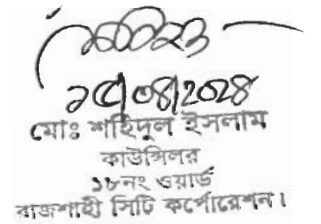 ২৫/০৪/২০২৪
মোঃ শহিদুল ইসলাম
কাউন্সিলর
১৮নং ওয়ার্ড
রাজশাহী সিটি কর্পোরেশন।